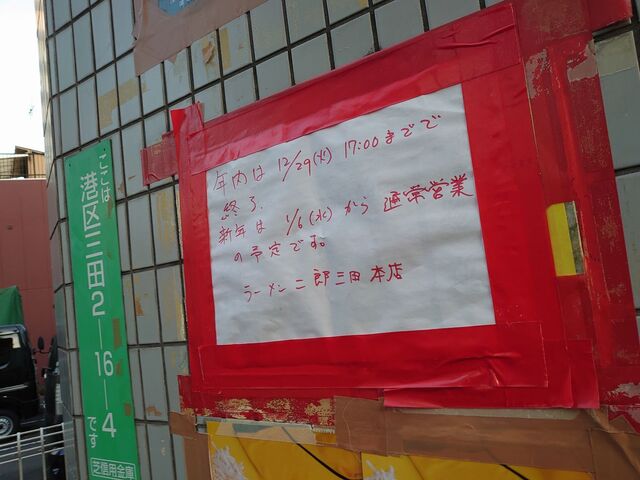 年内は 12/29(火) 17:00までで
終了.
新年は 1/6(水)から 通常営業
の予定です。
ラーメン二郎三田本店
ここは
港区三田2―16―4
です
芝信用金庫